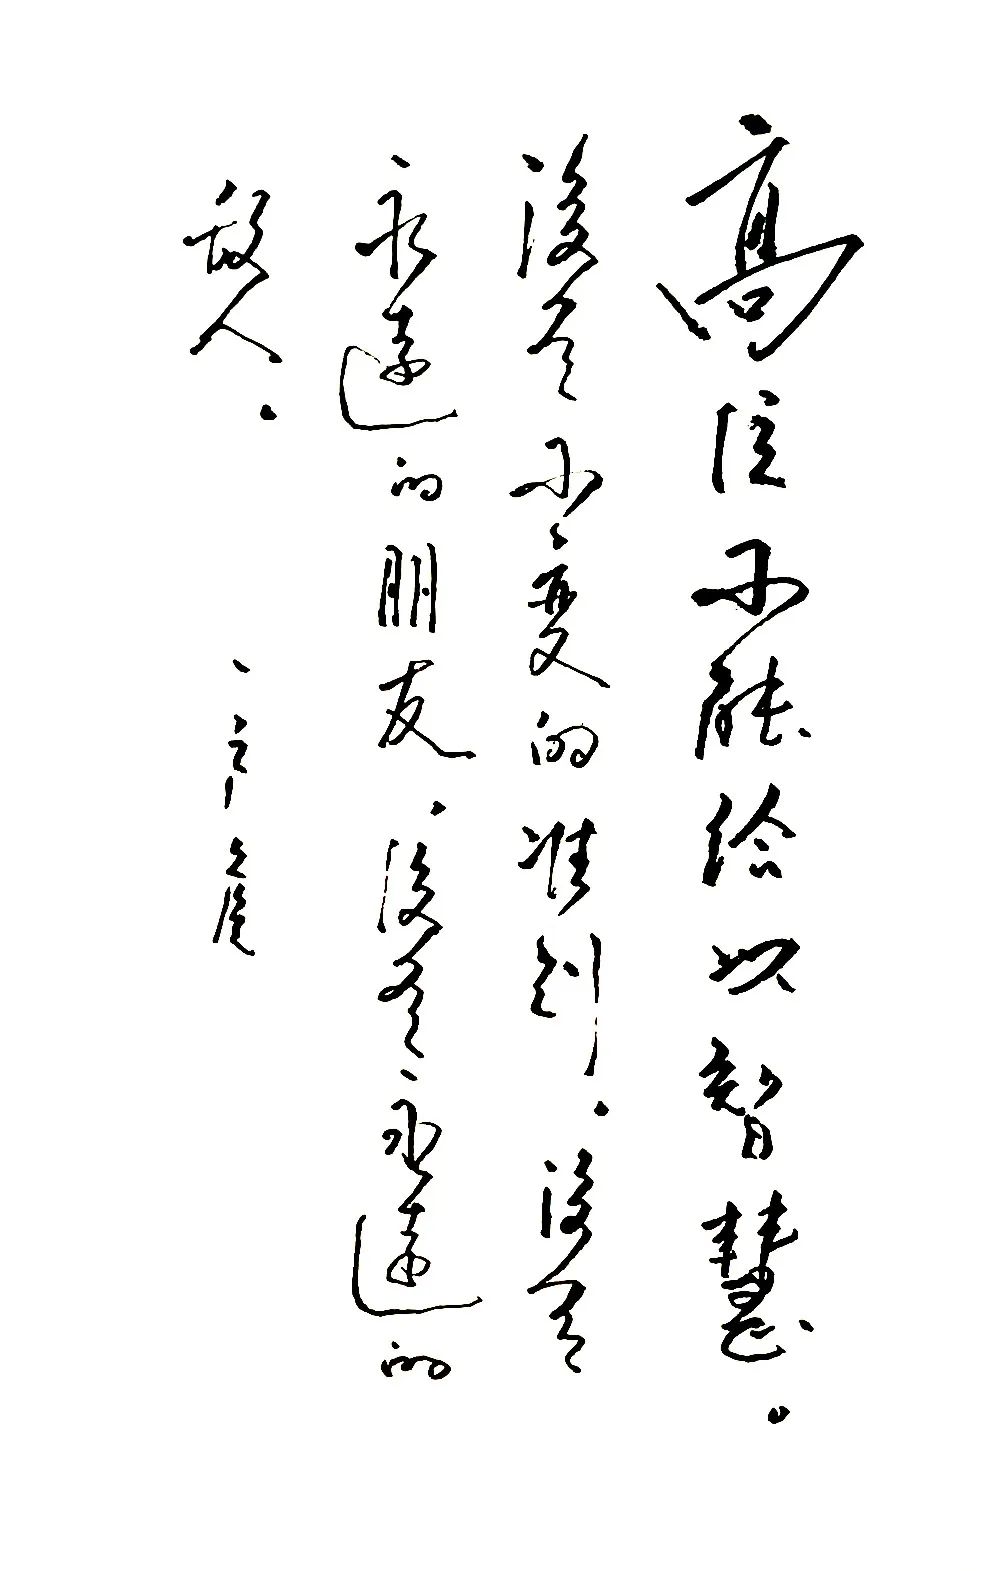 高位不能给以智慧。
没有不变的准则，没有
永远的朋友，没有永远的
敌人。